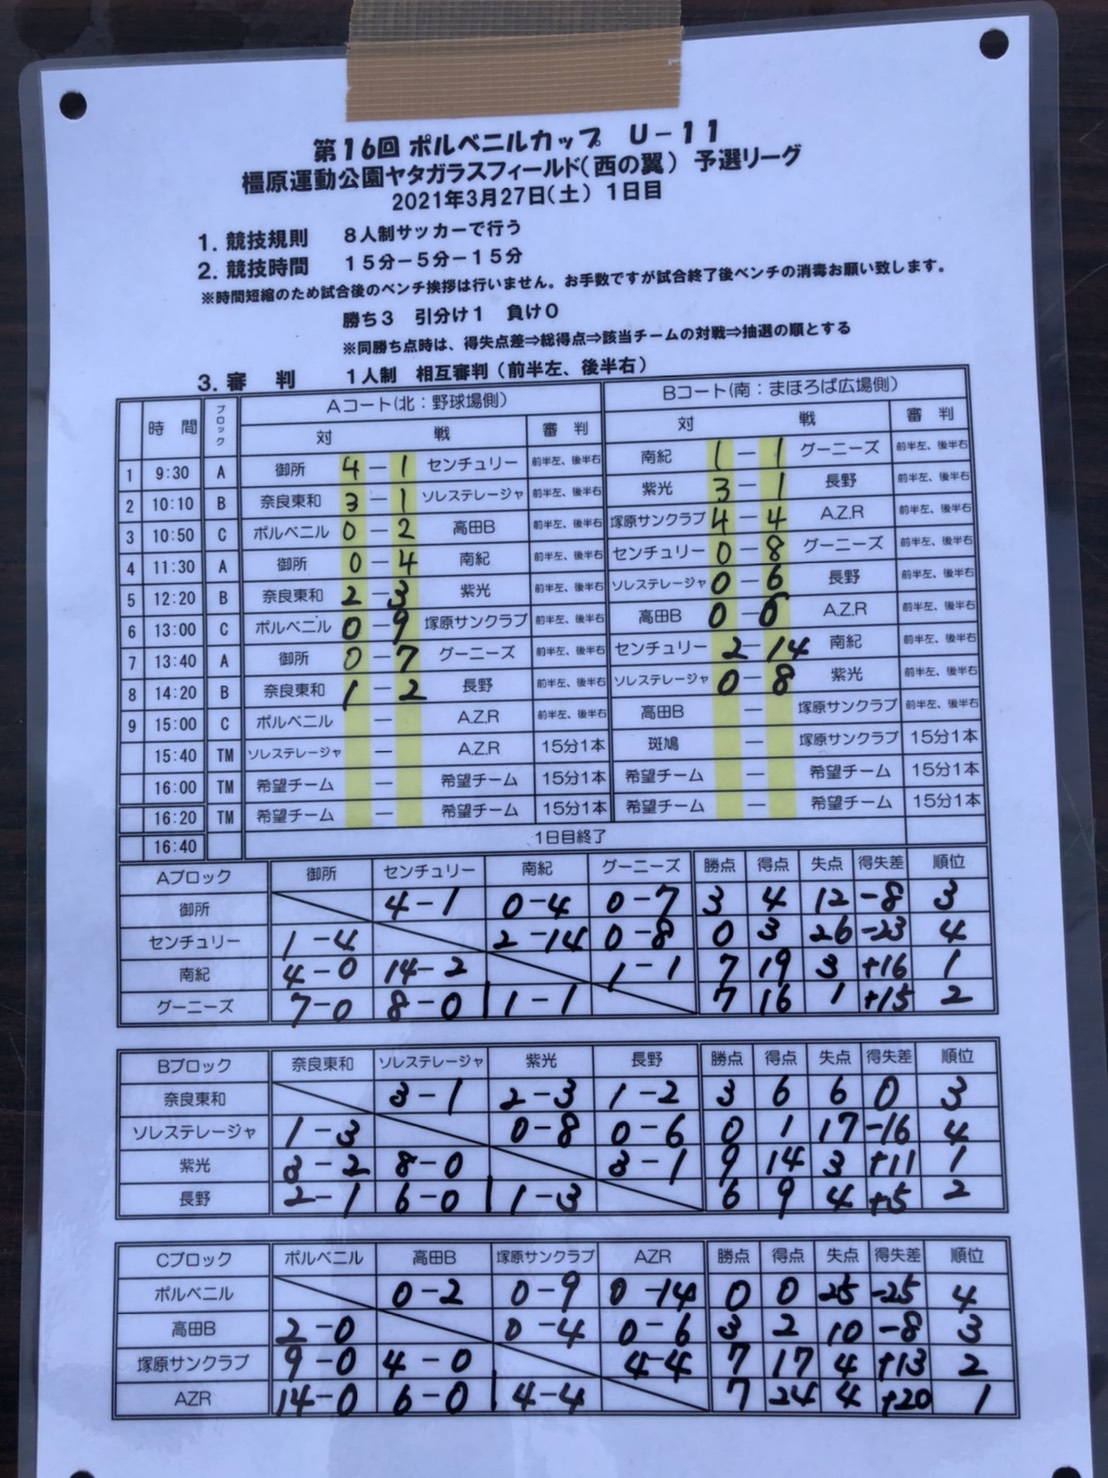 第16回 ポルベニルカップ U－11
橿原運動公園ヤタガラスフィールド(西の翼) 予選リーグ
2021年3月27日(土) 1日目
1. 競技規則 8人制サッカーで行う
2. 競技時間 15分－5分－15分
※時間短縮のため試合後のベンチ挨拶は行いません。お手数ですが試合終了後ベンチの消毒お願い致します。
勝ち3 引分け1 負け0
※同勝ち点時は、得失点差⇒総得点⇒該当チームの対戦⇒抽選の順とする
3. 審 判 1人制 相互審判(前半左、後半右)
時 間 ブロック Aコート(北：野球場側) Bコート(南：まほろば広場側)
対 戦 審 判 対 戦 審 判
1 9:30 A 御所 4 － 1 センチュリー 前半左、後半右 南紀 1 － 1 グーニーズ 前半左、後半右
2 10:10 B 奈良東和 3 － 1 ソレステレージャ 前半左、後半右 紫光 3 － 1 長野 前半左、後半右
3 10:50 C ポルベニル 0 － 2 高田B 前半左、後半右 塚原サンクラブ 4 － 4 A.Z.R 前半左、後半右
4 11:30 A 御所 0 － 4 南紀 前半左、後半右 センチュリー 0 － 8 グーニーズ 前半左、後半右
5 12:20 B 奈良東和 2 － 3 紫光 前半左、後半右 ソレステレージャ 0 － 6 長野 前半左、後半右
6 13:00 C ポルベニル 0 － 9 塚原サンクラブ 前半左、後半右 高田B 0 － 6 A.Z.R 前半左、後半右
7 13:40 A 御所 0 － 7 グーニーズ 前半左、後半右 センチュリー 2 － 14 南紀 前半左、後半右
8 14:20 B 奈良東和 1 － 2 長野 前半左、後半右 ソレステレージャ 0 － 8 紫光 前半左、後半右
9 15:00 C ポルベニル － A.Z.R 前半左、後半右 高田B － 塚原サンクラブ 前半左、後半右
15:40 TM ソレステレージャ － A.Z.R 15分1本 斑鳩 － 塚原サンクラブ 15分1本
16:00 TM 希望チーム － 希望チーム 15分1本 希望チーム － 希望チーム 15分1本
16:20 TM 希望チーム － 希望チーム 15分1本 希望チーム － 希望チーム 15分1本
16:40 1日目終了
Aブロック 御所 センチュリー 南紀 グーニーズ 勝点 得点 失点 得失差 順位
御所 4－1 0－4 0－7 3 4 12 -8 3
センチュリー 1－4 2－14 0－8 0 3 26 -23 4
南紀 4－0 14－2 1－1 7 19 3 +16 1
グーニーズ 7－0 8－0 1－1 7 16 1 +15 2
Bブロック 奈良東和 ソレステレージャ 紫光 長野 勝点 得点 失点 得失差 順位
奈良東和 3－1 2－3 1－2 3 6 6 0 3
ソレステレージャ 1－3 0－8 0－6 0 1 17 -16 4
紫光 3－2 8－0 3－1 9 14 3 +11 1
長野 2－1 6－0 1－3 6 9 4 +5 2
Cブロック ポルベニル 高田B 塚原サンクラブ AZR 勝点 得点 失点 得失差 順位
ポルベニル 0－2 0－9 0－14 0 0 25 -25 4
高田B 2－0 0－4 0－6 3 2 10 -8 3
塚原サンクラブ 9－0 4－0 4－4 7 17 4 +13 2
AZR 14－0 6－0 4－4 7 24 4 +20 1